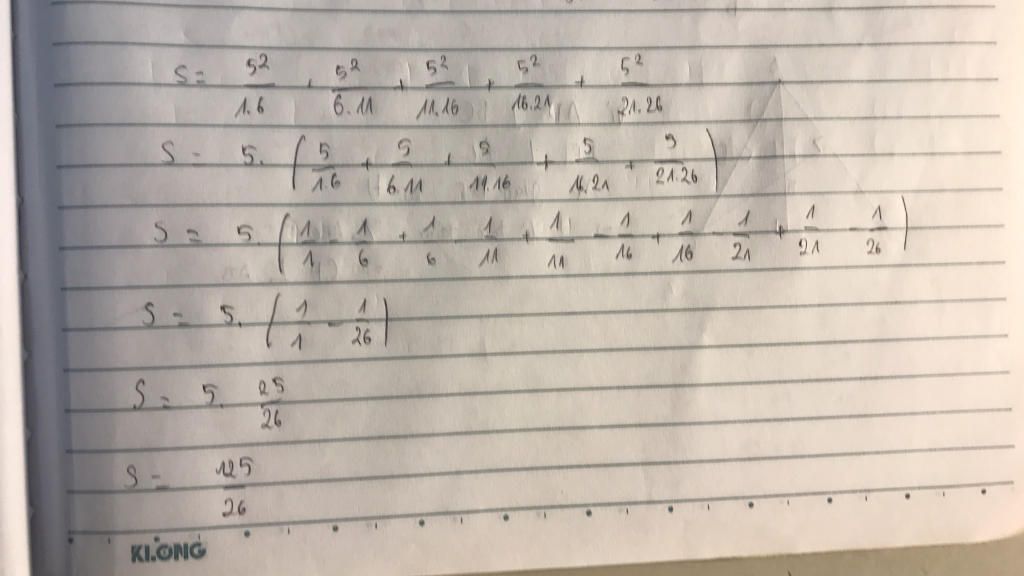 S = 5²/1.6 + 5²/6.11 + 5²/11.16 + 5²/16.21 + 5²/21.26
S = 5. (5/1.6 + 5/6.11 + 5/11.16 + 5/16.21 + 5/21.26)
S = 5. (1/1 - 1/6 + 1/6 - 1/11 + 1/11 - 1/16 + 1/16 - 1/21 + 1/21 - 1/26)
S = 5. (1/1 - 1/26)
S = 5. 25/26
S = 125/26
KLONG